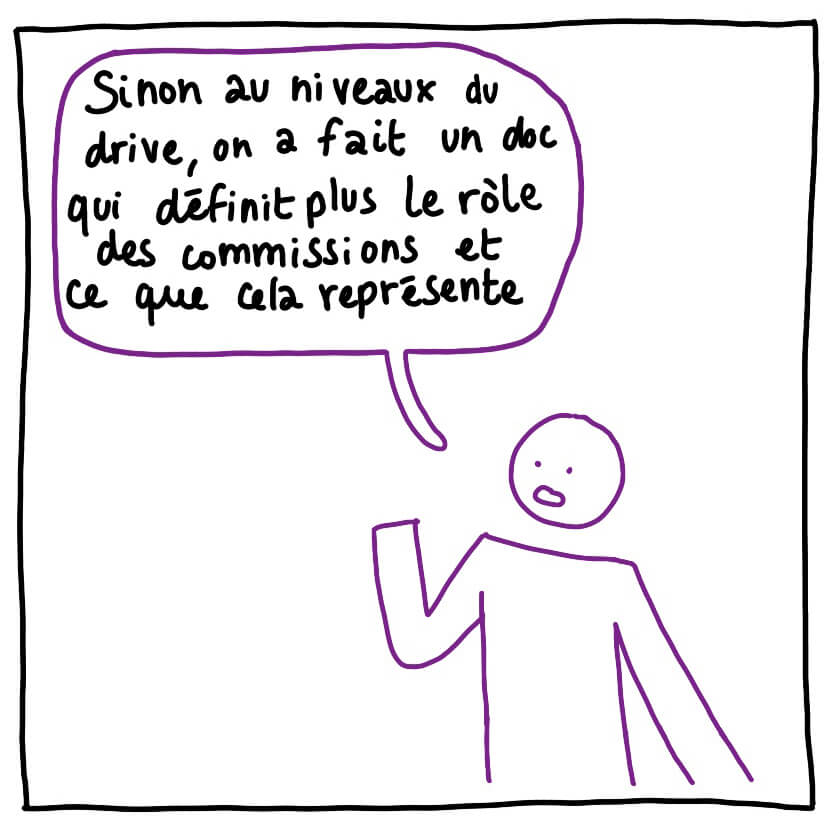 Sinon au niveaux du
drive, on a fait un doc
qui définit plus le rôle
des commissions et
ce que cela représente